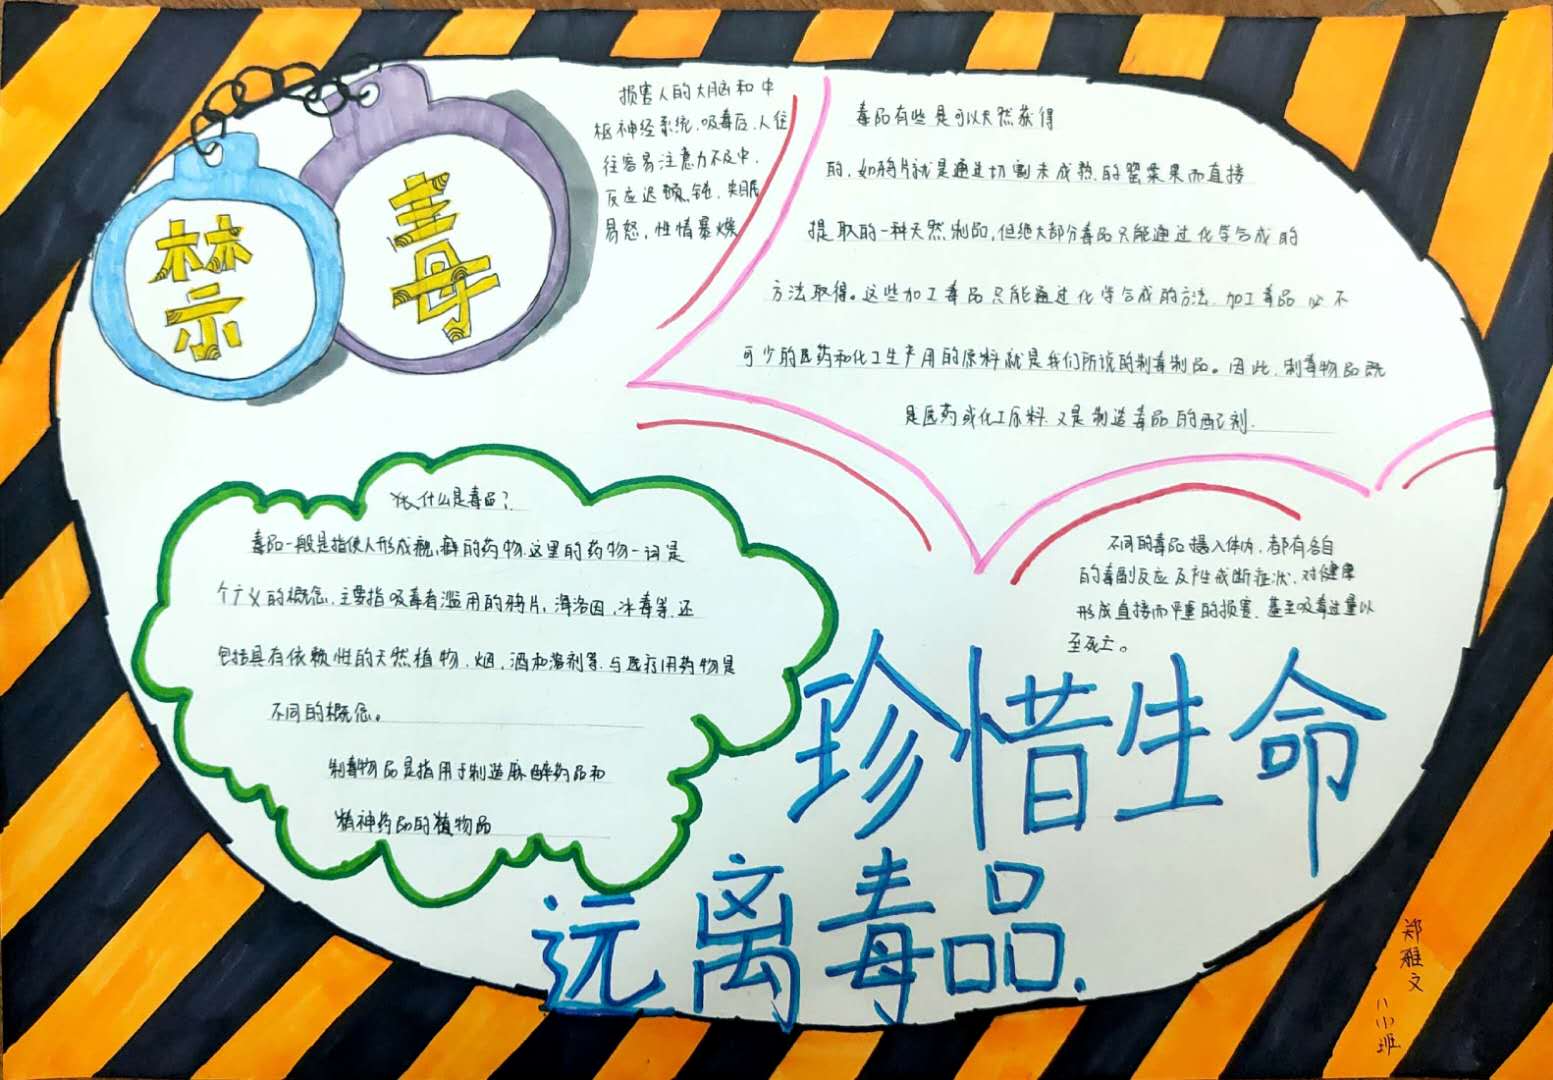 禁毒
损害人的大脑和中
枢神经系统,吸毒后,人往
往容易注意力不及中,
反应迟钝,失眠
易怒,性情暴燥
毒品有些是可以天然获得
的,如鸦片就是通过切割未成熟的罂粟果而直接
提取的一种天然制品,但绝大部分毒品只能通过化学合成的
方法取得。这些加工毒品只能通过化学合成的方法,加工毒品必不
可少的医药和化工生产用的原料就是我们所说的制毒制品。因此,制毒物品既
是医药或化工原料,又是制造毒品的配剂.
什么是毒品?
毒品一般是指使人形成瘾癖的药物.这里的药物一词是
个广义的概念,主要指吸毒者滥用的鸦片,海洛因,冰毒等,还
包括具有依赖性的天然植物、烟,酒和溶剂等,与医疗用药物是
不同的概念。
制毒物品是指用于制造麻醉药品和
精神药品的植物品
不同的毒品摄入体内,都有各自
的毒副反应及产生戒断症状,对健康
形成直接而严重的损害,甚至吸毒过量以
至死亡。
珍惜生命
远离毒品.
郑雅文
八小班